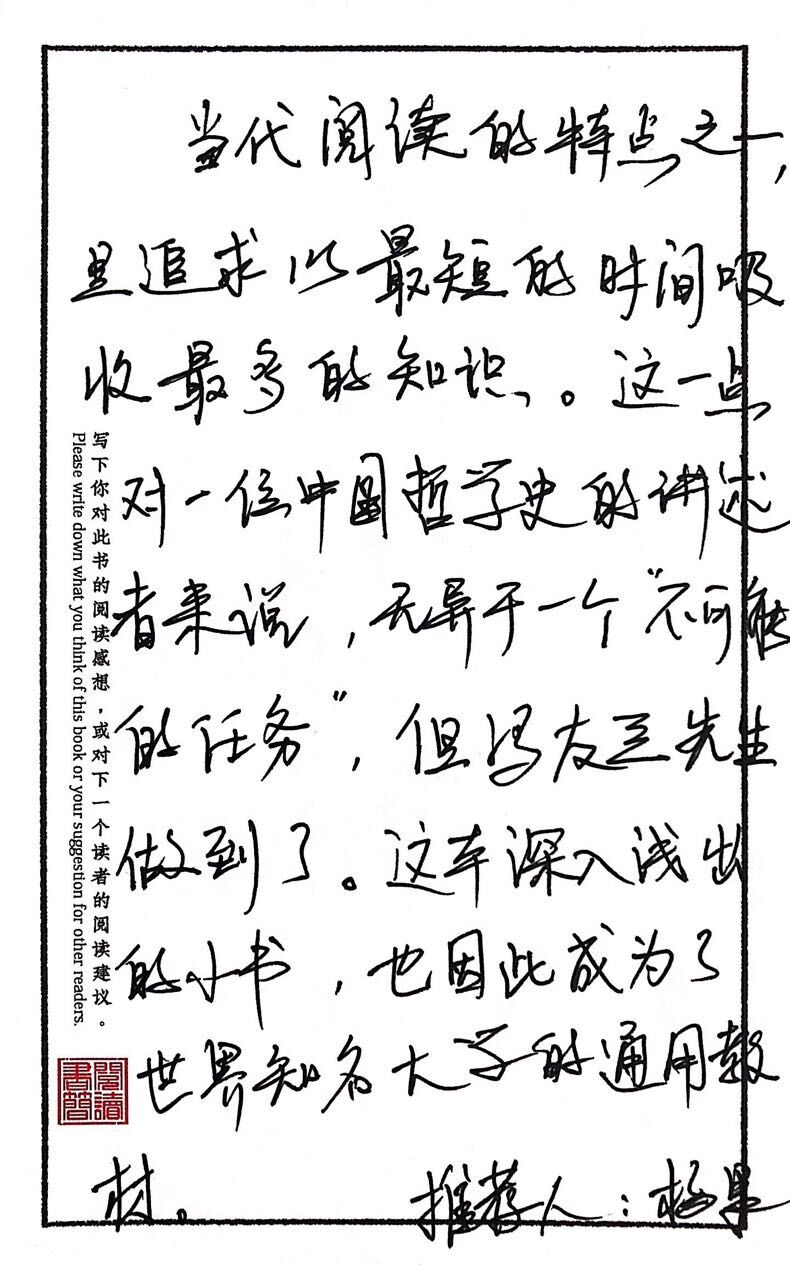 当代阅读的特点之一，
是追求以最短的时间吸
收最多的知识。这一点
对一位中国哲学史的讲述
者来说，无异于一个“不可能
的任务”，但冯友兰先生
做到了。这本深入浅出
的小书，也因此成为了
世界知名大学的通用教
材。 推荐人：杨果
写下你对此书的阅读感想，或对下一个读者的阅读建议。
Please write down what you think of this book or your suggestion for other readers.
閱讀書簡